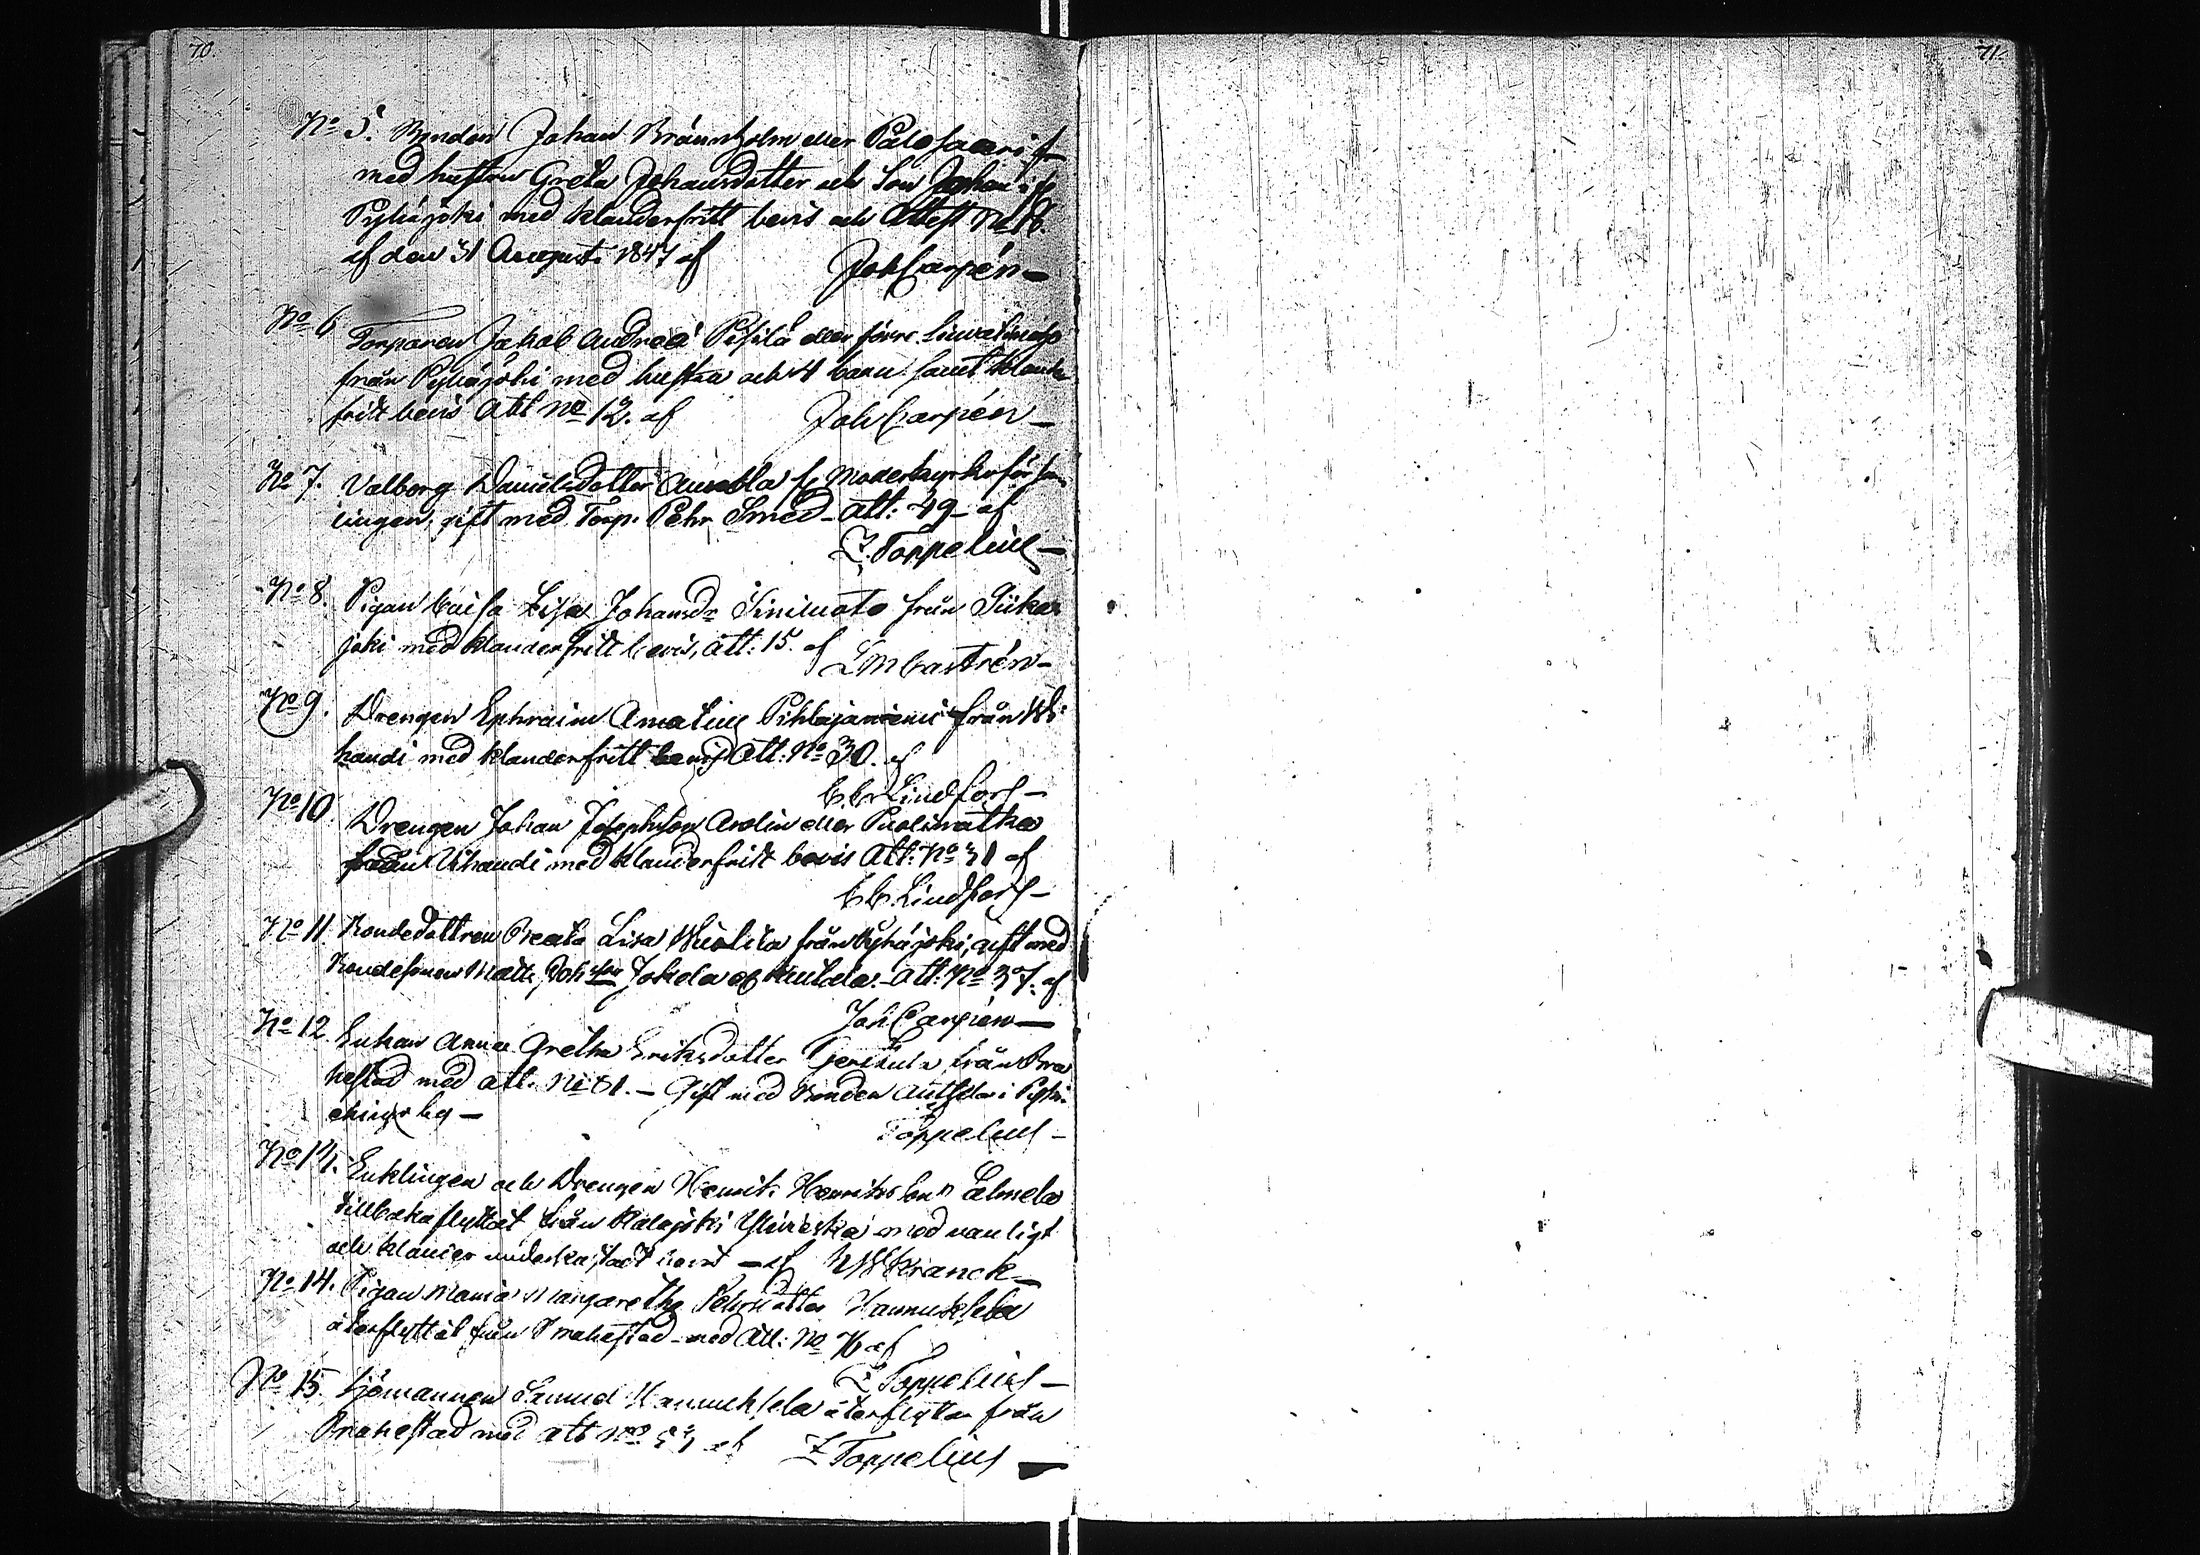 70.
71.
No 5. Bonden Johan Brännholm eller Palosaari fr
med hustru Greta Johansdotter och Son Johan ifr
Pyhäjoki med klanderfritt bevis och Attest No 18.
af den 31 Augusti 1847 af Joh Carpén
No 6 Torparen Jakob Andreæ Pisilä eller förre
från Pyhäjoki med hustru och 4 barn samt klander
fritt bevis Att No 12. af Joh Carpén
No 7. Valborg Danielsdotter Annala fr Moderkyrkoförsam
lingen, gift med Torp. Pehr Smed - Att: 49 - af
Z. Toppelius
No 8. Pigan Caisa Lisa Johansdr Sinimato från Siika
joki med klanderfritt bevis, Att: 15. af L M Castrén
No 9. Drengen Ephraim Amatius Pihlajaniemi från Wi
handi med klanderfritt bevis Att: No 30. af
Lindfors
No 10 Drengen Johan Josephsson Arolin eller Puolimatka
från Vihandi med klanderfritt bevis Att: No 31 af
Lindfors
No 11. Bondedottren Breata Lisa från Pyhäjoki, gift med
Bondesonen Matts Johsson Jokela Att: No 37. af
Joh Carpén
No 12 Enkan Anna Gretha Eriksdotter från Bra
hestad med att. No 61. - Gift med Bonden i
by -
Toppelius
No 14. Enklingen och Drengen Henrik Henriksson
tillbakaflyttat från Kalajoki Ylivieska med vanligt
och klander bevis - af Kranck
No 14. Pigan Maria Margaretha Pehrsdotter Hannuksela
återflyttat från Brahestad med Att: No 76 af
Z Toppelius
No 15. Sjömannen Samuel Hannuksela återflyttar från
Brahestad med att No af Z Toppelius